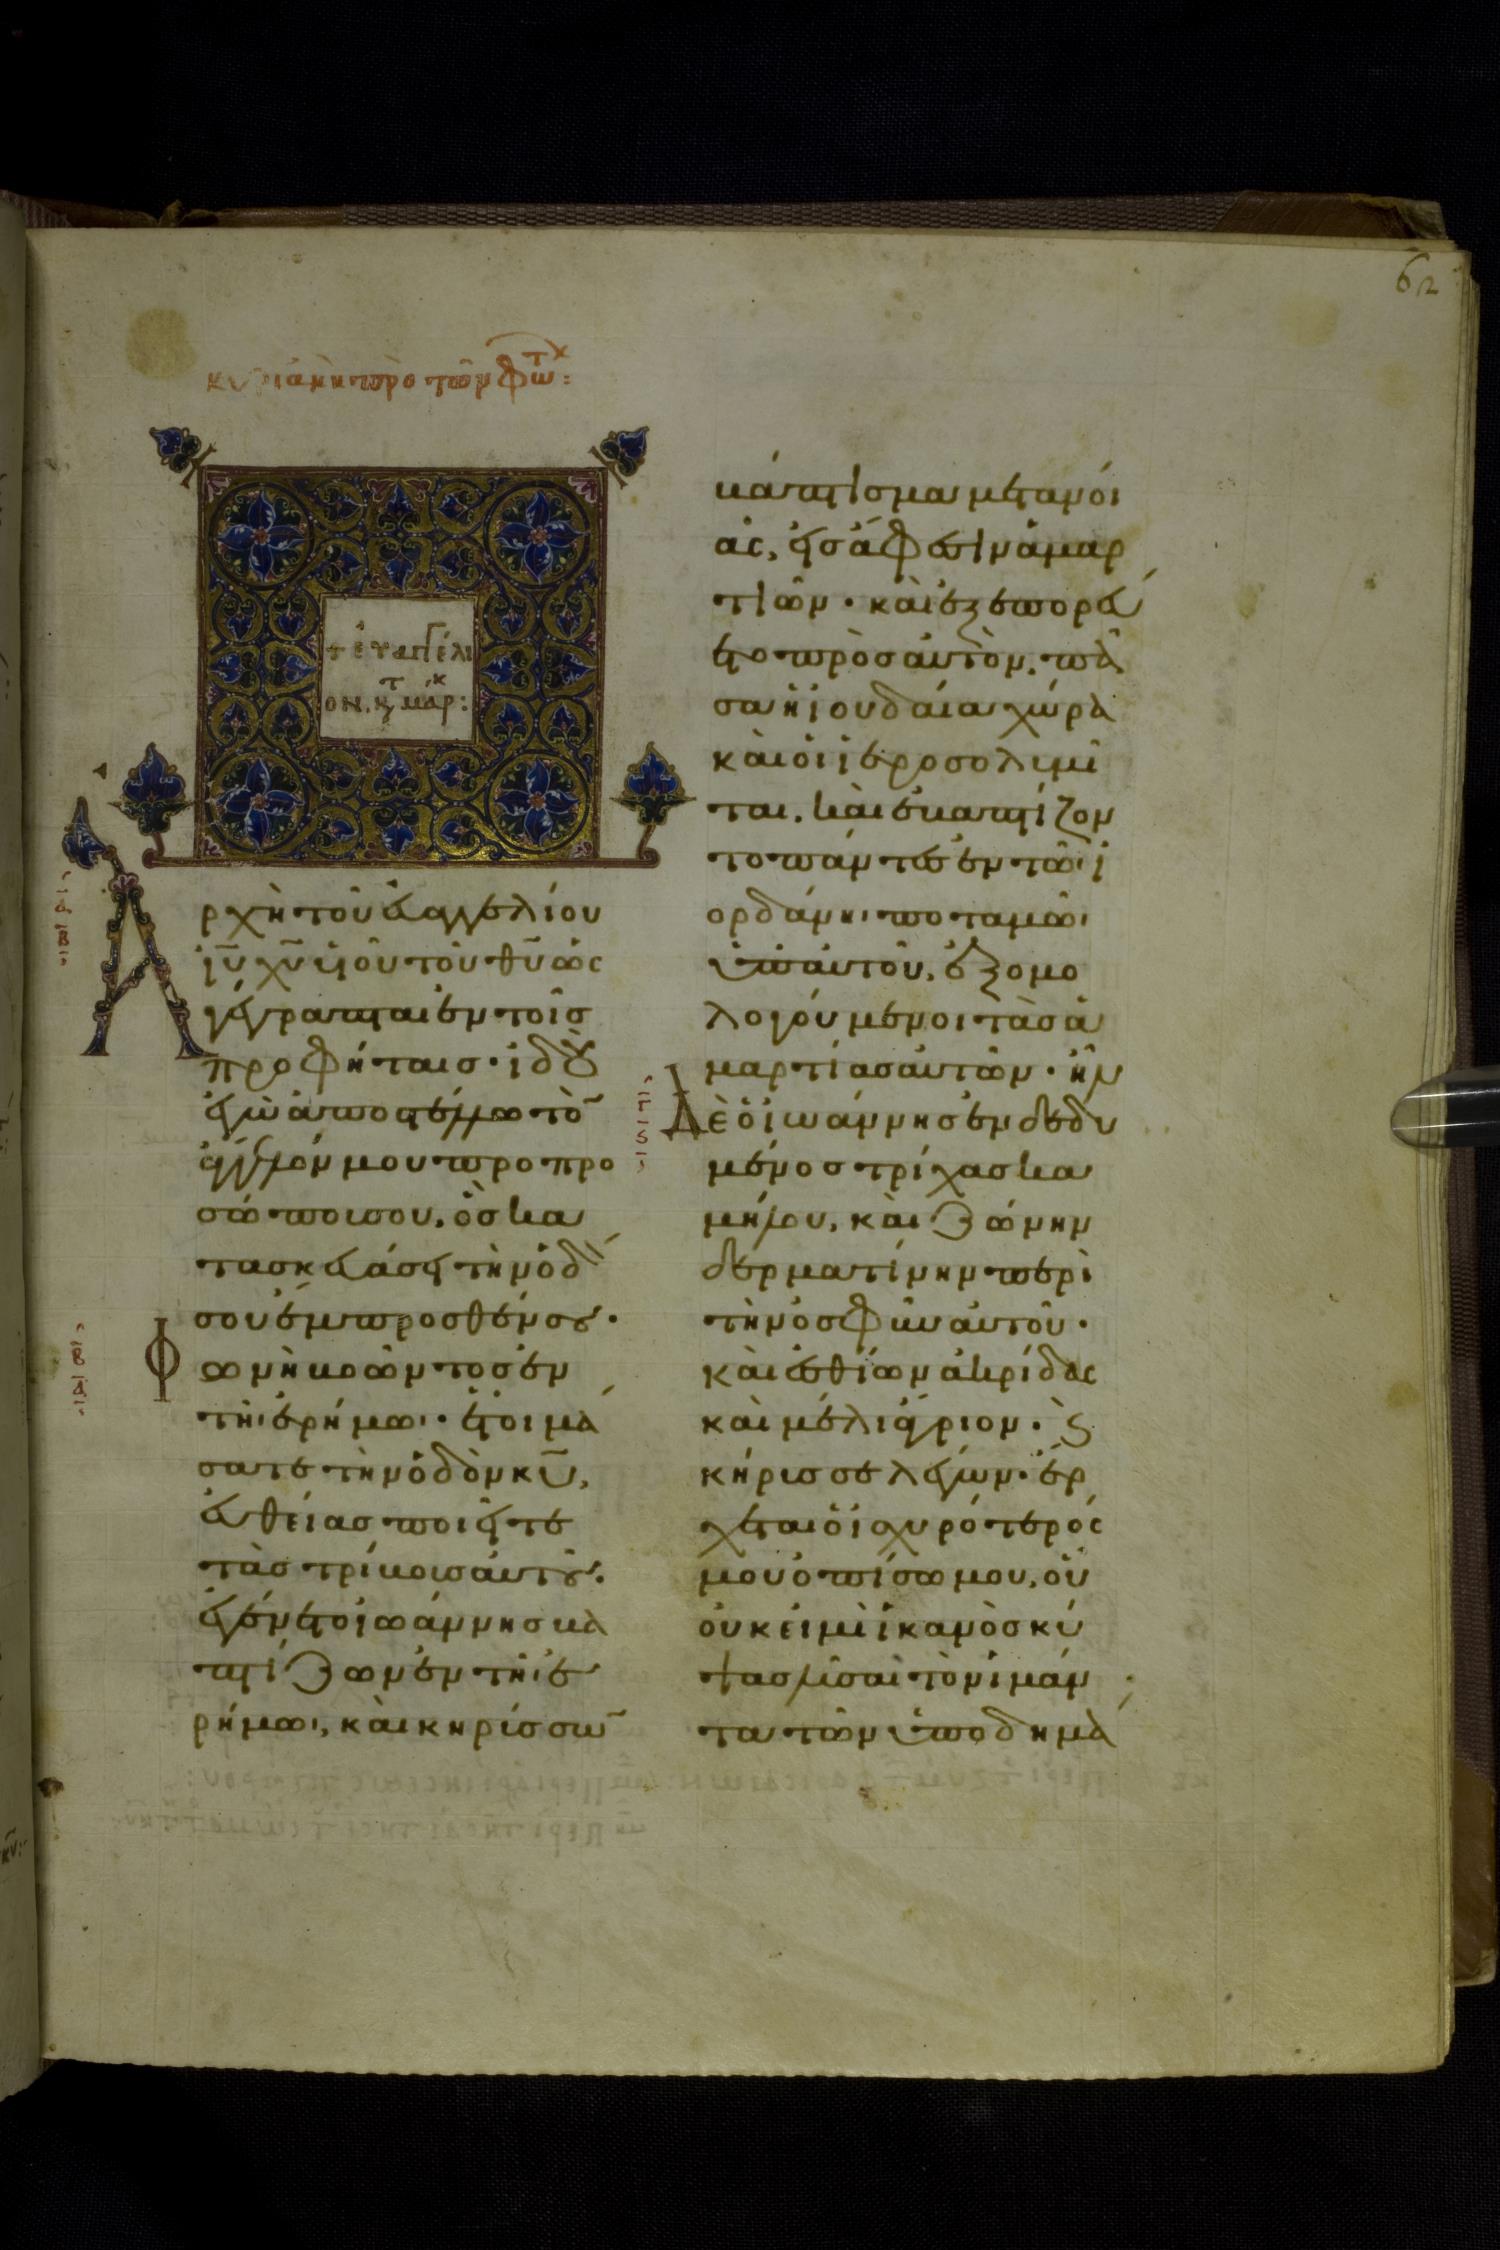 62
κυριακὴ πρὸ τῶν φώτ
τὸ εὐαγγέλι
ον. κτ μάρκ:
Ἀρχὴ τοῦ εὐαγγελίου
ἰῦ χῦ υἱοῦ τοῦ θῦ ὡς
γέγραπται ἐν τοῖς
προφήταις· ἰδοὺ
ἐγὼ ἀποστέλλω τὸ̄
ἄγγελόν μου πρὸ προ
σώποι σου, ὃς κα
τασκευάσει τὴν ὁδ
σου ἔμπροσθέν σου·
Φωνὴ βοῶντος ἐν
τῆι ἐρήμωι· ἑτοιμά
σατε τὴν ὁδὸν κῦ,
εὐθείας ποιεῖτε
τὰς τρίβοις αὐτοῦ·
ἐγένετο ἰωάννης βα
πτίζων ἐν τῆι ἐ
ρήμωι, καὶ κηρίσσω̄
βάπτισμα μετανοί
ας, εἰς ἄφεσιν ἁμαρ
τιῶν· καὶ ἐξεπορεύ
ετο πρὸς αὐτὸν, πᾶ
σα ἡ ἰουδαία χώρα
καὶ οἱ ἱεροσολιμῖ
ται, καὶ ἐβαπτίζον
το πάντες ἐν τῶι ἰ
ορδάνηι ποταμῶι
ὑπ' αὐτοῦ, ἐξομο
λογούμενοι τὰς ἁ
μαρτίας αὐτῶν· ἦν
Δὲ ὁ ἰωάννης ἐνδεδυ
μένος τρίχας κα
μήλου, καὶ ζώνην
δερματίνην περὶ
τὴν ὀσφὺν αὐτοῦ·
καὶ ἐσθίων ἀκρίδας
καὶ μέλι ἄγριον· ϗ
κήρισσε λέγων· ἔρ
χεται ὁ ἰσχυρότερός
μου ὀπίσω μου, οὗ
οὐκ εἰμὶ ἱκανὸς κύ
ψας λῦσαι τὸν ἱμάν
τα τῶν ὑποδημά